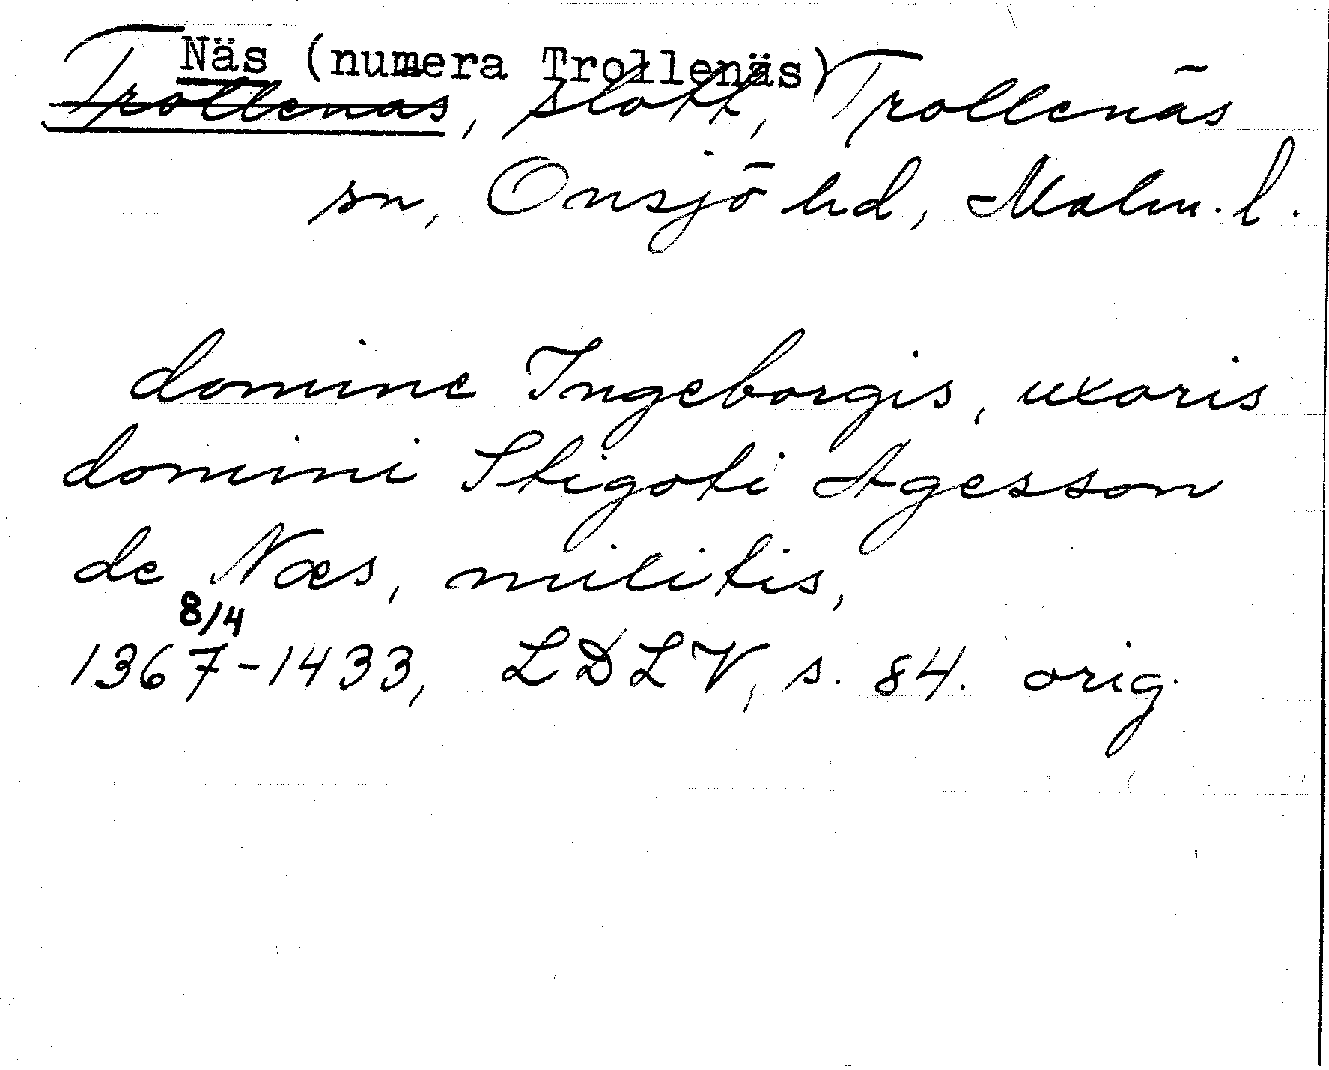 Näs (numera Trollenäs)
Trollenäs, slott, Trollenäs
sn, Onsjö hd, Malm. l.
domine Ingeborgis, uxoris
domini Stigoti Agesson
de Næs, militis,
8/4
1367-1433, LDLV, s. 84. orig.